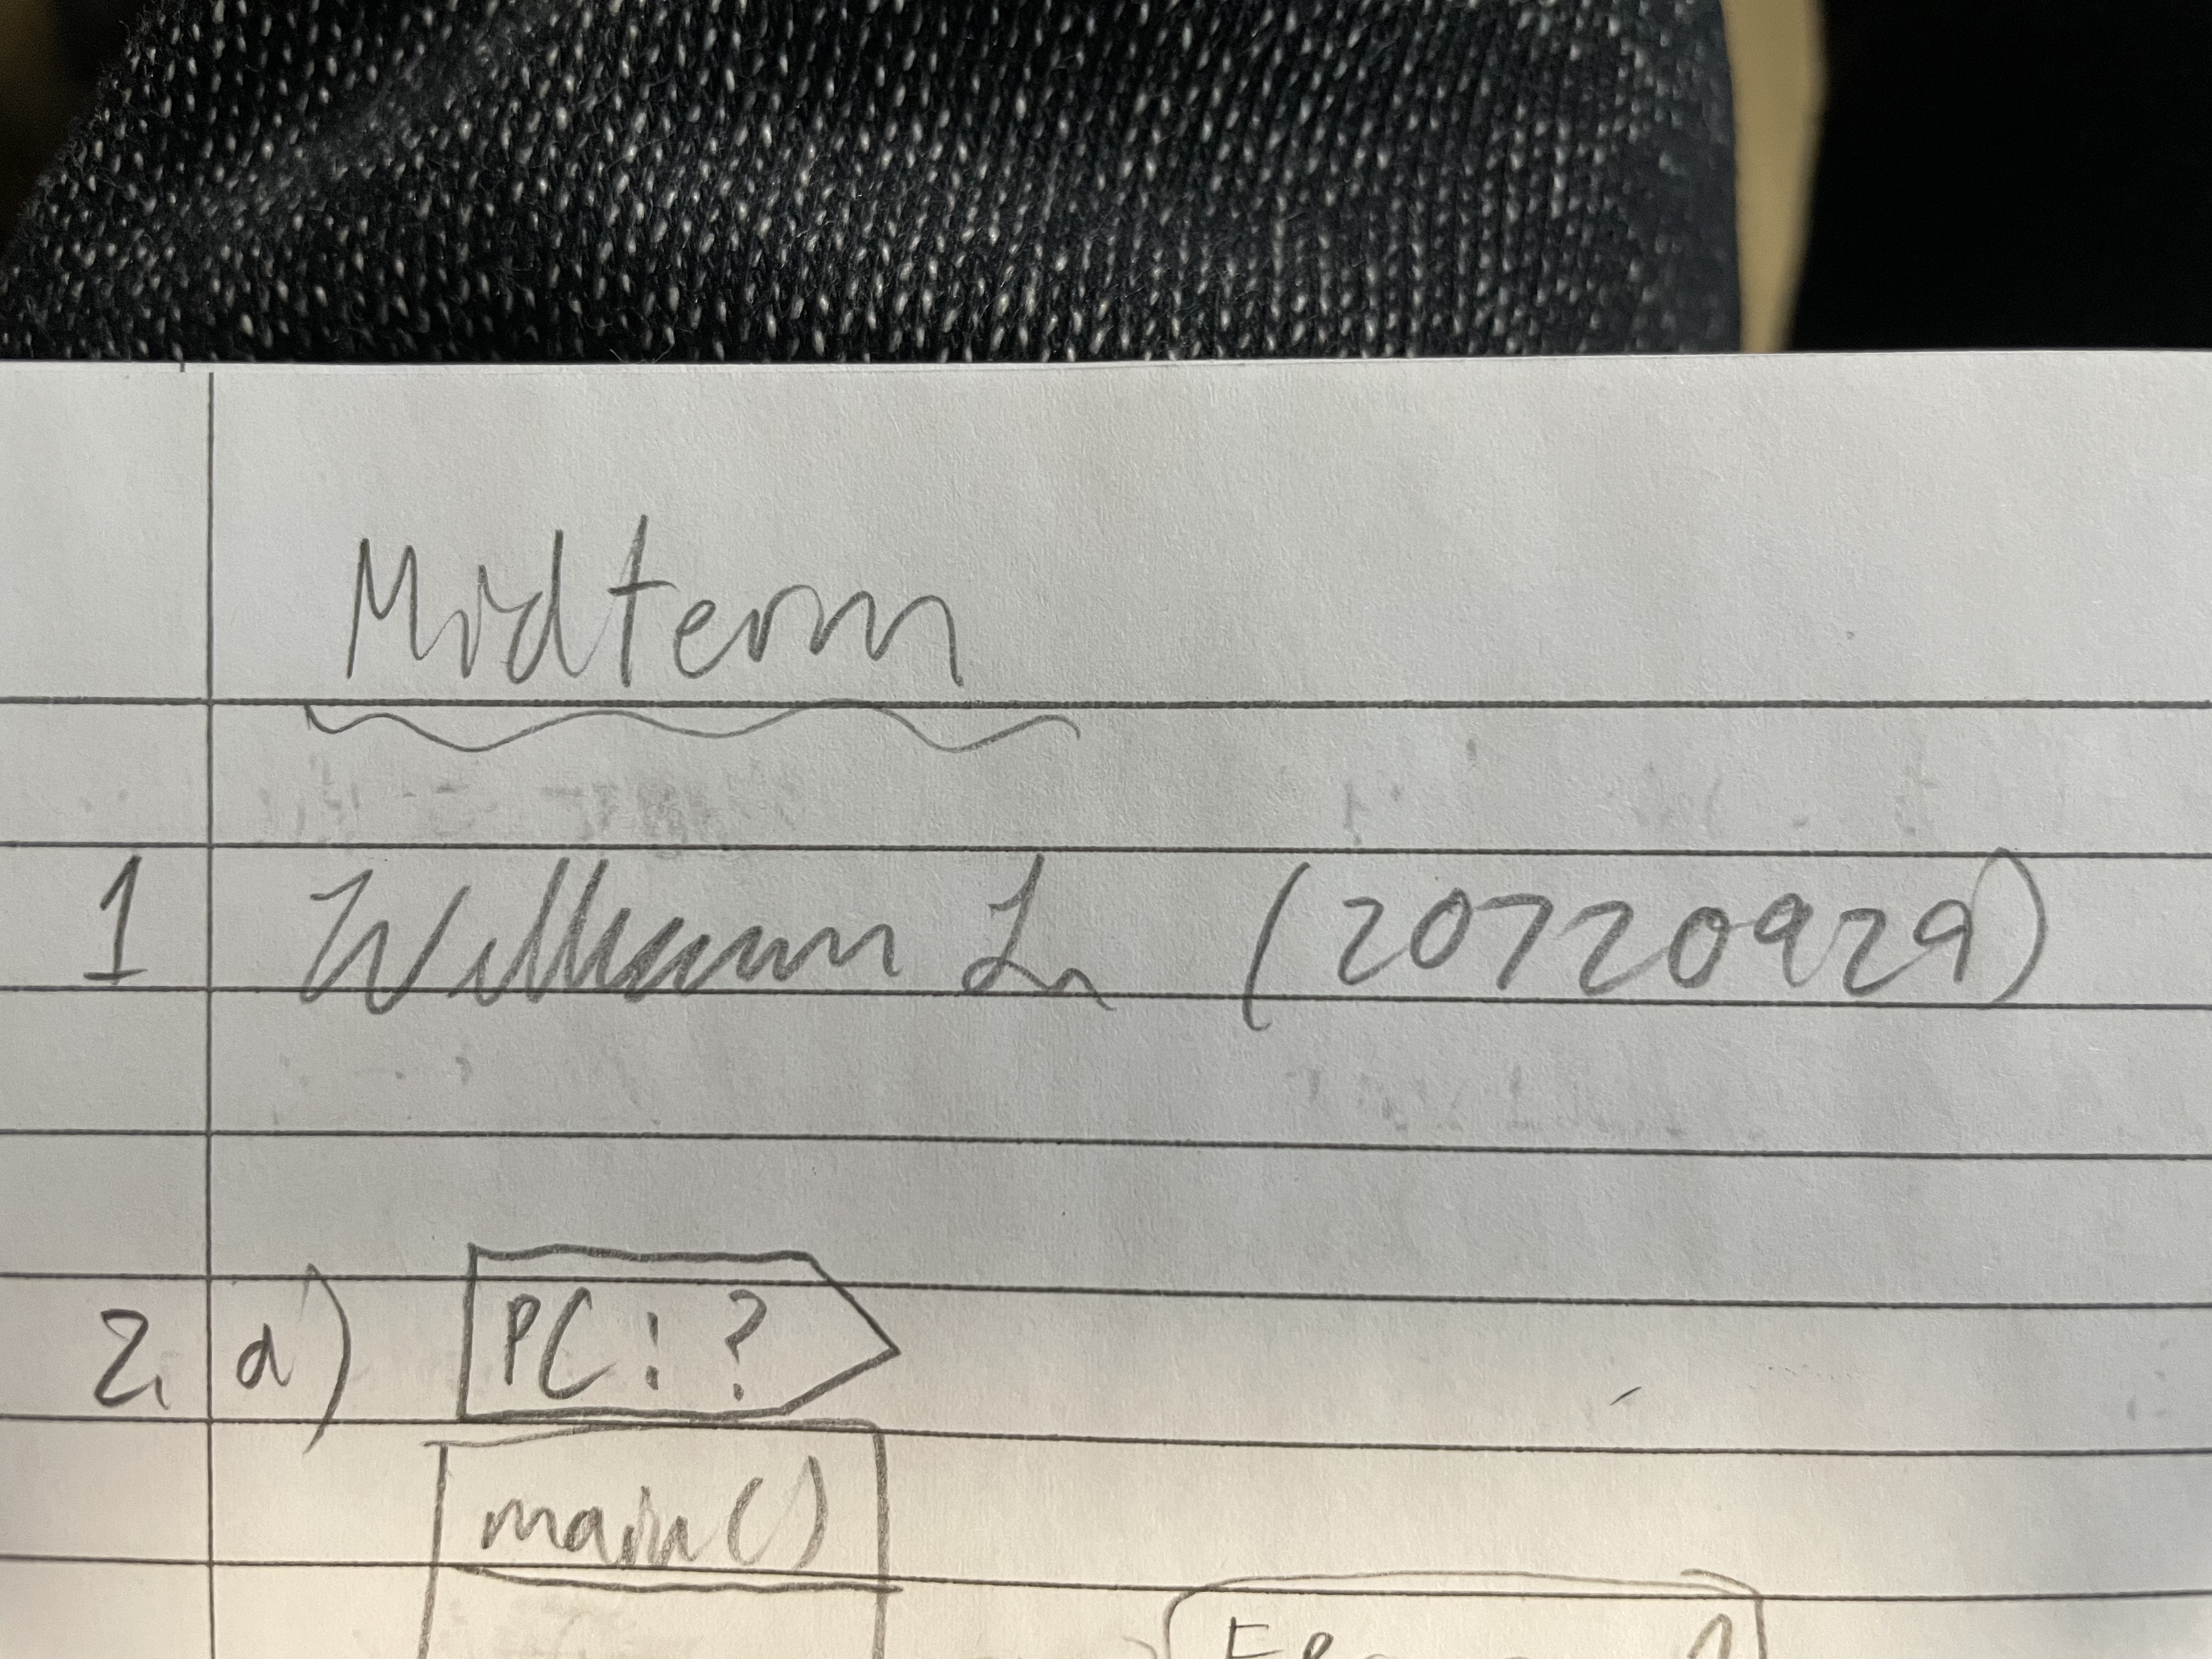 Midterm
1 William (20720929)
2. a) PC: ?
main()